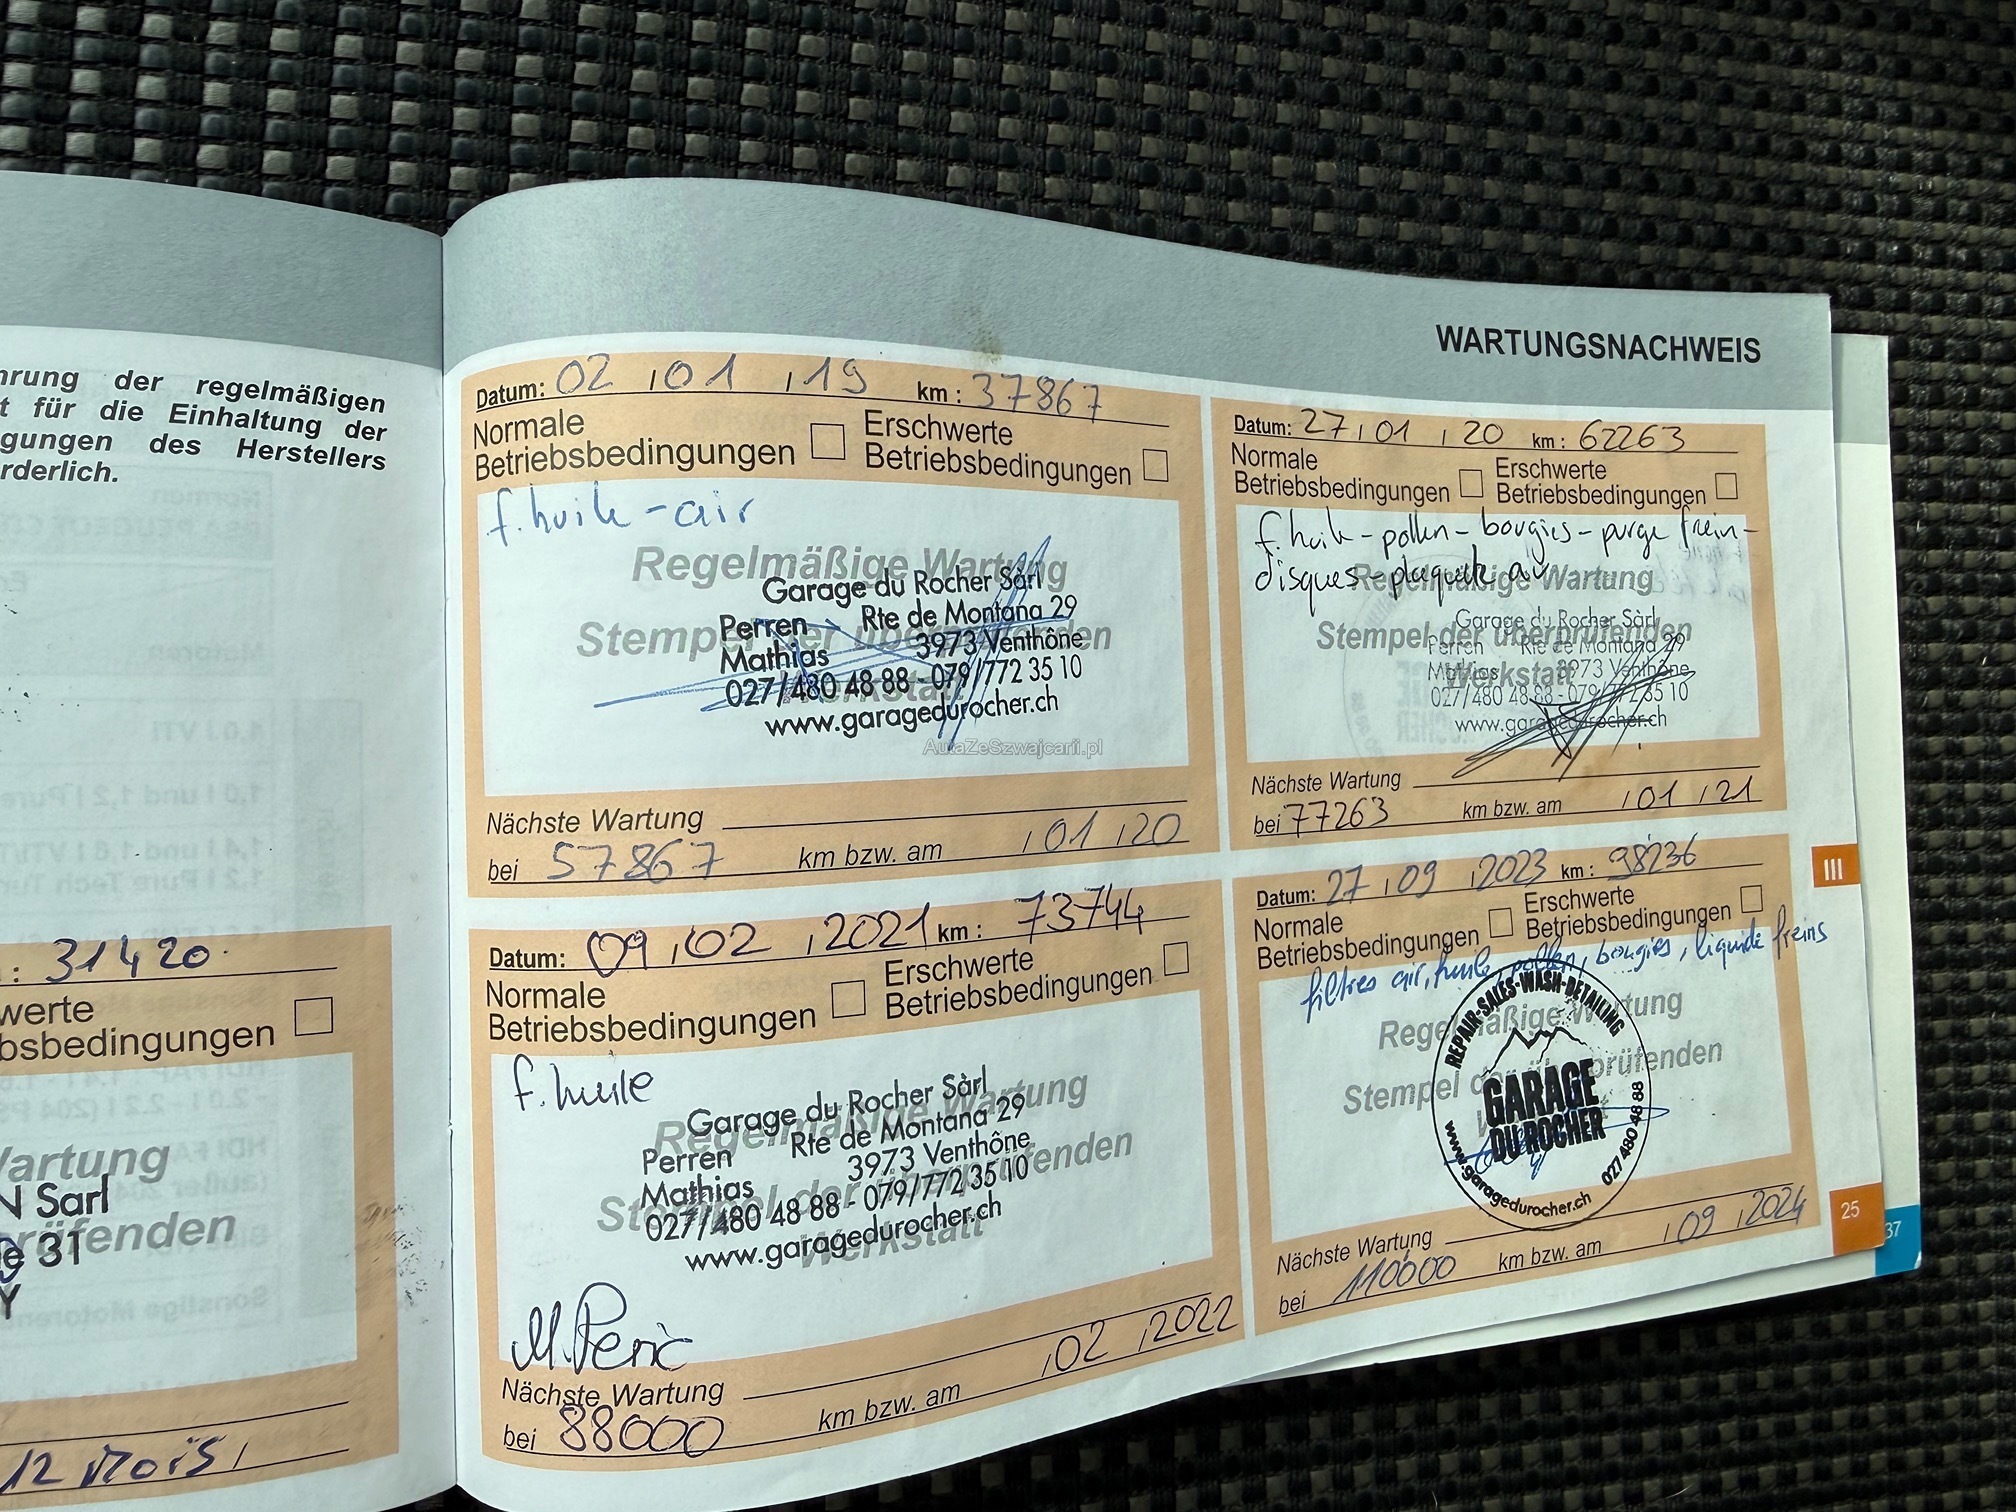 hrung der regelmäßigen
t für die Einhaltung der
gungen des Herstellers
rderlich.
: 31420.
werte
bsbedingungen
Wartung
N Sarl
rüfenden
e 31
Y
12 Mois
WARTUNGSNACHWEIS
Datum: 02 , 01 , 19 km : 37867
Normale Betriebsbedingungen
Erschwerte Betriebsbedingungen
f. huile - air
Regelmäßige Wartung
Stempel der überprüfenden
Werkstatt
Garage du Rocher Sàrl
Perren Rte de Montana 29
Mathias 3973 Venthône
027/480 48 88 - 079/772 35 10
www.garagedurocher.ch
AutaZeSzwajcarii.pl
Nächste Wartung
bei 57867 km bzw. am , 01 , 20
Datum: 27 , 01 , 20 km : 62263
Normale Betriebsbedingungen
Erschwerte Betriebsbedingungen
f. huile - pollen - bougies - purge frein -
disques - plaquette av
Regelmäßige Wartung
Stempel der überprüfenden
Werkstatt
Garage du Rocher Sàrl
Perren Rte de Montana 29
Mathias 3973 Venthône
027/480 48 88 - 079/772 35 10
www.garagedurocher.ch
Nächste Wartung
bei 77263 km bzw. am , 01 , 21
Datum: 09 , 02 , 2021 km : 73744
Normale Betriebsbedingungen
Erschwerte Betriebsbedingungen
f. huile
Regelmäßige Wartung
Stempel der überprüfenden
Werkstatt
Garage du Rocher Sàrl
Perren Rte de Montana 29
Mathias 3973 Venthône
027/480 48 88 - 079/772 35 10
www.garagedurocher.ch
Nächste Wartung
bei 88000 km bzw. am , 02 , 2022
Datum: 27 , 09 , 2023 km : 98236
Normale Betriebsbedingungen
Erschwerte Betriebsbedingungen
filtres air, huile, pollen, bougies, liquide freins
Regelmäßige Wartung
Stempel der überprüfenden
REPAIR-SALES-WASH-DETAILING
GARAGE
DU ROCHER
www.garagedurocher.ch 027 480 48 88
Nächste Wartung
bei 110000 km bzw. am , 09 , 2024
III
25
37